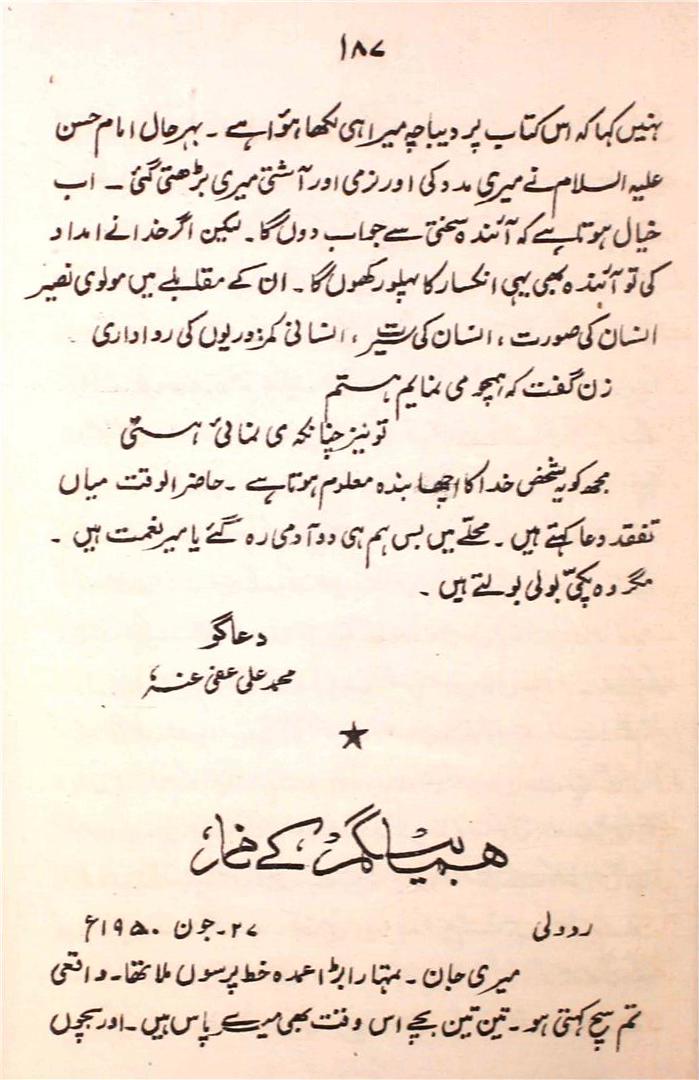 ۱۸۷
نہیں کہا کہ اس کتاب پر دیباچہ میرا ہی لکھا ہوا ہے ۔ بہر حال امام حسن
علیہ السلام نے میری مدد کی اور نرمی اور آشتی میری بڑھتی گئی ۔ اب
خیال ہوتا ہے کہ آئندہ سختی سے جواب دوں گا۔ لیکن اگر خدا نے امداد
کی تو آئندہ بھی یہی انکسار کا پہلو رکھوں گا ۔ ان کے مقابلے میں مولوی نصیر
انسان کی صورت ، انسان کی سیرت ، انسانی کمزوریوں کی رواداری
زن گفت کہ ہمچو می نمایم ہستم
تو نیز چنانکہ می نمائی ہستی
مجھ کو یہ شخص خدا کا اچھا بندہ معلوم ہوتا ہے ۔ حاضر الوقت میاں
تفقد دعا کہتے ہیں ۔ محلے میں بس ہم ہی دو آدمی رہ گئے یا میر نعمت ہیں ۔
مگر وہ پکی بولی بولتے ہیں ۔
دعاگو
محمد علی عفی عنہٗ
ہما بیگم کے نام
ردولی ۲۷۔ جون ۱۹۵۰ء
میری جان ۔ تمہارا بڑا عمدہ خط پرسوں ملا تھا۔ واقعی
تم سچ کہتی ہو ۔ تین تین بچے اس وقت بھی میرے پاس ہیں ۔ اور بچوں